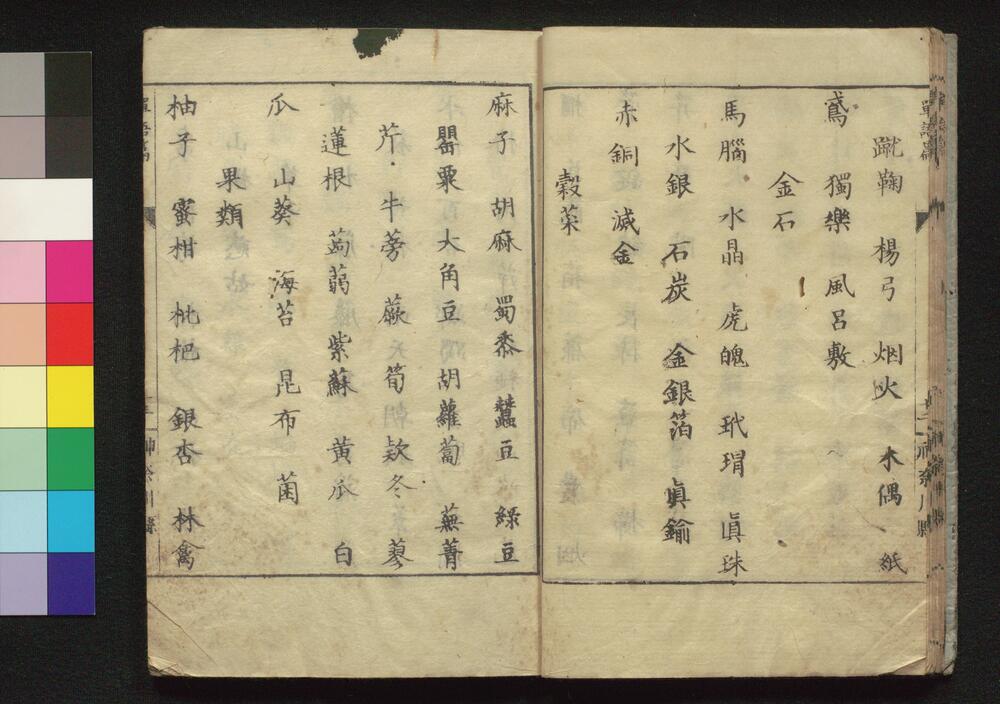 蹴鞠 楊弓 烟火 木偶 紙
鳶 獨樂 風呂敷
金石
馬腦 水晶 虎魄 玳瑁 眞珠
水銀 石炭 金銀箔 眞鍮
赤銅 滅金
穀菜
麻子 胡麻 蜀黍 蠶豆 綠豆
罌粟 大角豆 胡蘿蔔 蕪菁
芹 牛蒡 蕨 筍 欵冬 蓼
蓮根 蒟蒻 紫蘇 黃瓜 白
瓜 山葵 海苔 昆布 菌
果類
柚子 蜜柑 枇杷 銀杏 林禽
單語篇 神奈川縣